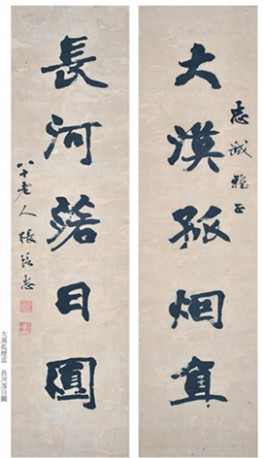 大漠孤烟直
志誠雅正
長河落日圓
八十老人張
大漠孤煙直 長河落日圓